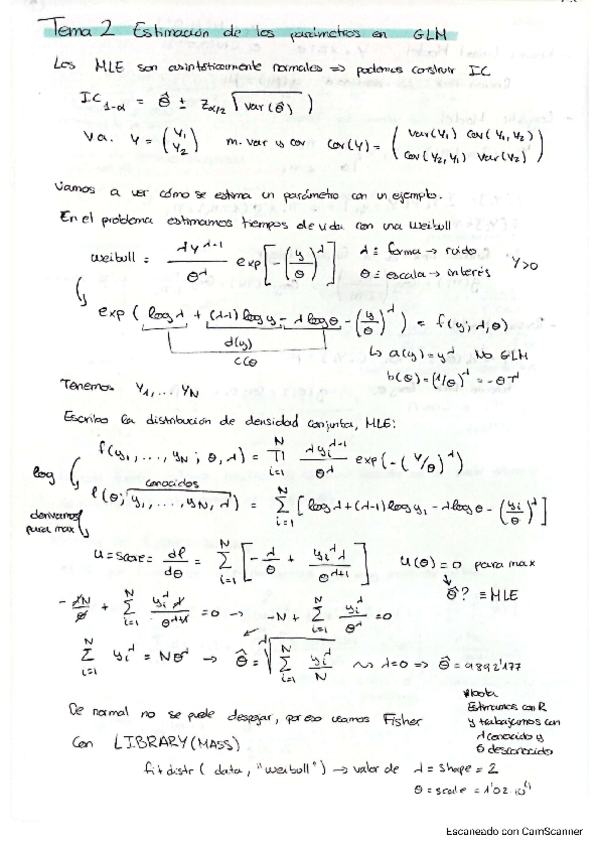 Tema 2 Estimación de los parámetros en GLM
Los MLE son asintóticamente normales => podemos construir IC
IC₁₋α = θ̂ ± z_α/2 √(var(θ̂))
v.a. Y = (Y₁ Y₂) m. var y cov Cov(Y) = (Var(Y₁) Cov(Y₁,Y₂) Cov(Y₂,Y₁) Var(Y₂))
Vamos a ver cómo se estima un parámetro con un ejemplo.
En el problema estimamos tiempos de vida con una weibull
weibull = λy^(λ-1)/θ^λ exp[-(y/θ)^λ] λ ≡ forma → ruido
θ ≡ escala → interés Y>0
exp(log λ + (λ-1)log y - λ log θ - (y/θ)^λ) = f(y; λ, θ)
d(y)
c(θ)
↳ a(y) = y^λ No GLM
b(θ) = (1/θ)^λ = -θ^-λ
Tenemos Y₁, ... Y_N
Escribo la distribución de densidad conjunta, MLE:
f(y₁, ..., y_N; θ, λ) = ∏ i=1 N λy_i^(λ-1)/θ^λ exp(-(y/θ)^λ)
log
conocidos
ℓ(θ; y₁, ..., y_N, λ) = ∑ i=1 N [log λ + (λ-1) log y_i - λ log θ - (y_i/θ)^λ]
derivamos
para max
U = score = dℓ/dθ = ∑ i=1 N [-λ/θ + y_i^λ λ/θ^(λ+1)] U(θ) = 0 para max
θ̂? ≡ MLE
-λN/θ + ∑ i=1 N y_i^λ λ/θ^(λ+1) = 0 → -N + ∑ i=1 N y_i^λ/θ^λ = 0
∑ i=1 N y_i^λ = Nθ^λ → θ̂ = λ√(∑ i=1 N y_i^λ/N) ~> λ=0 => θ̂ = 9892'177
De normal no se puede despejar, por eso usamos Fisher
Con LIBRARY(MASS)
fitdistr(data, "weibull") → valor de λ = shape = 2
θ = scale = 1'02·10⁴
*Nota
Estimamos con R
y trabajamos con
λ conocido y
θ desconocido
Escaneado con CamScanner